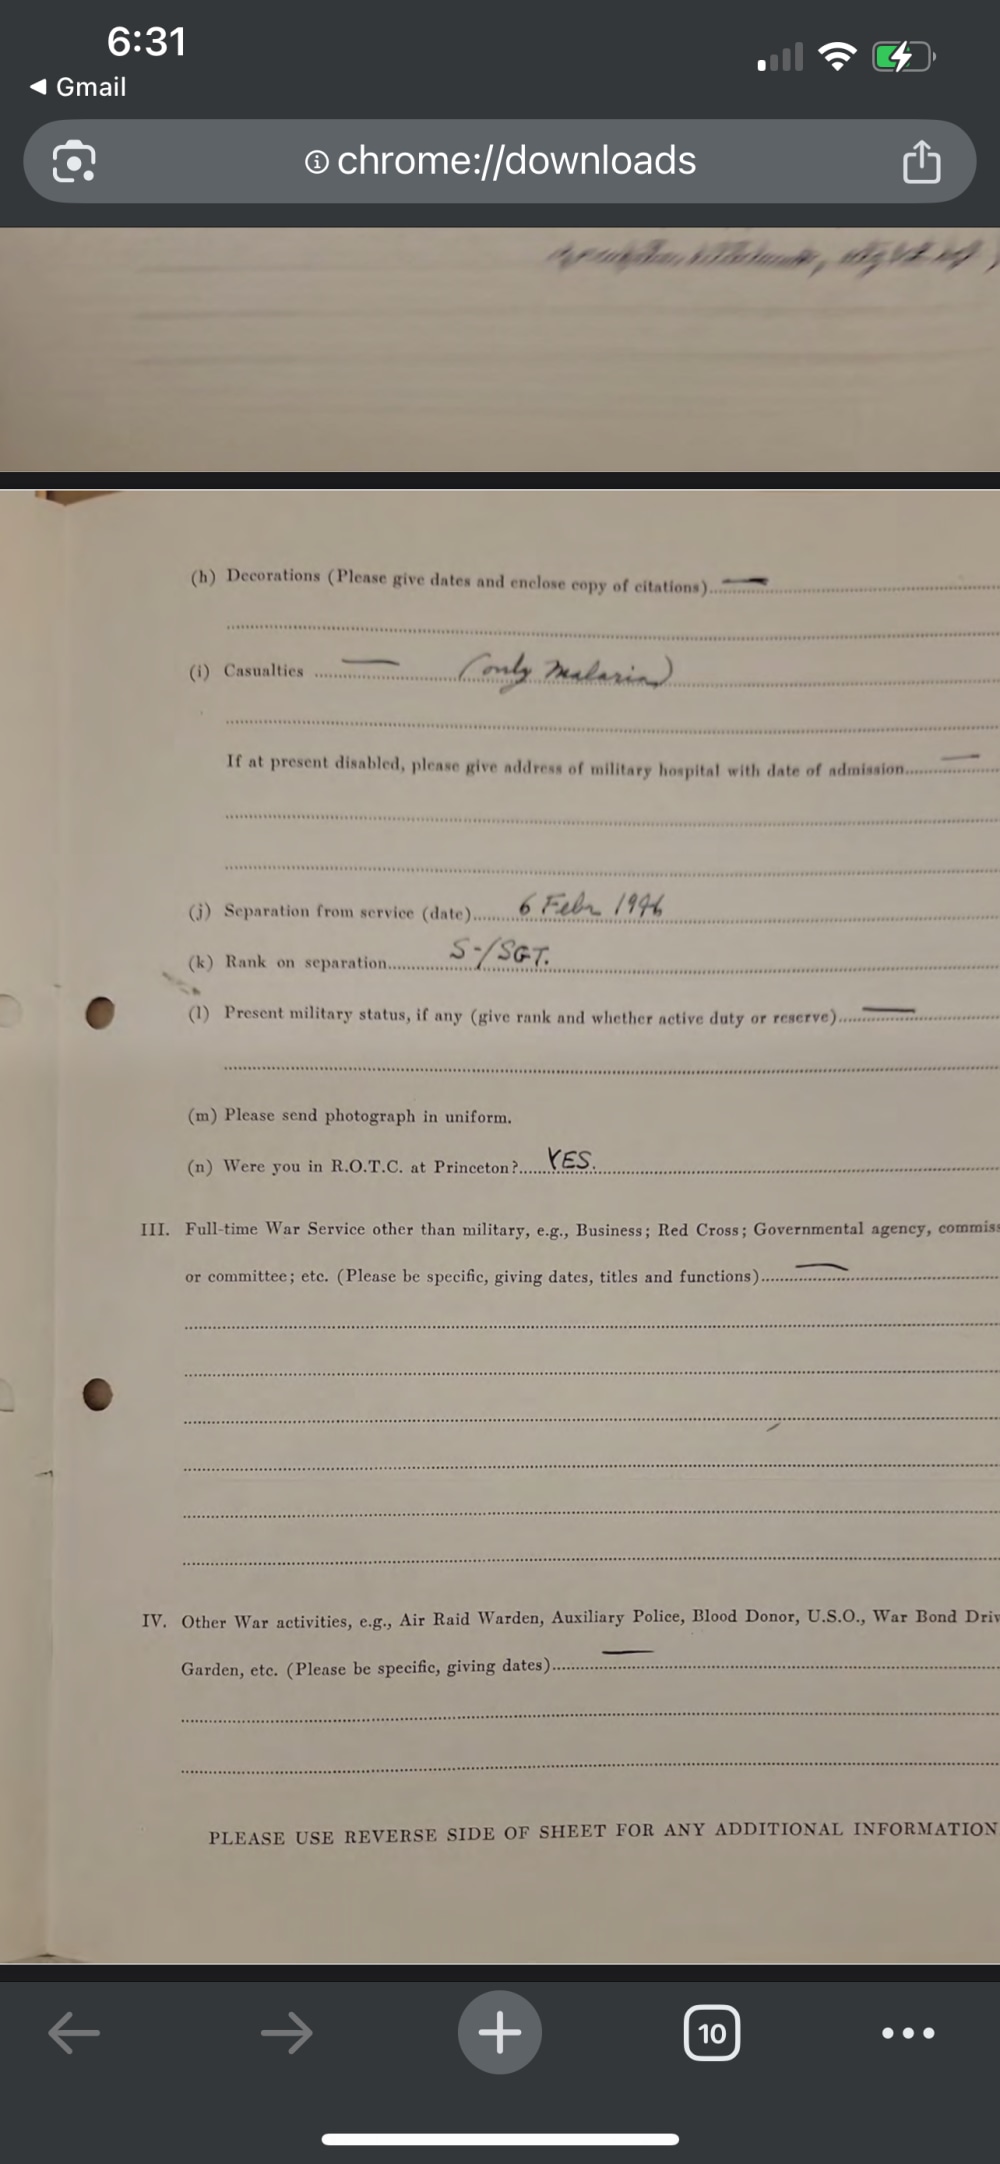 6:31
Gmail
chrome://downloads
(h) Decorations (Please give dates and enclose copy of citations)..... —
(i) Casualties ..... — (only Malaria)
If at present disabled, please give address of military hospital with date of admission..... —
(j) Separation from service (date)..... 6 Febr 1946
(k) Rank on separation..... S-/SGT.
(l) Present military status, if any (give rank and whether active duty or reserve)..... —
(m) Please send photograph in uniform.
(n) Were you in R.O.T.C. at Princeton?..... YES.
III. Full-time War Service other than military, e.g., Business; Red Cross; Governmental agency, commiss
or committee; etc. (Please be specific, giving dates, titles and functions)..... —
IV. Other War activities, e.g., Air Raid Warden, Auxiliary Police, Blood Donor, U.S.O., War Bond Driv
Garden, etc. (Please be specific, giving dates)..... —
PLEASE USE REVERSE SIDE OF SHEET FOR ANY ADDITIONAL INFORMATION
10